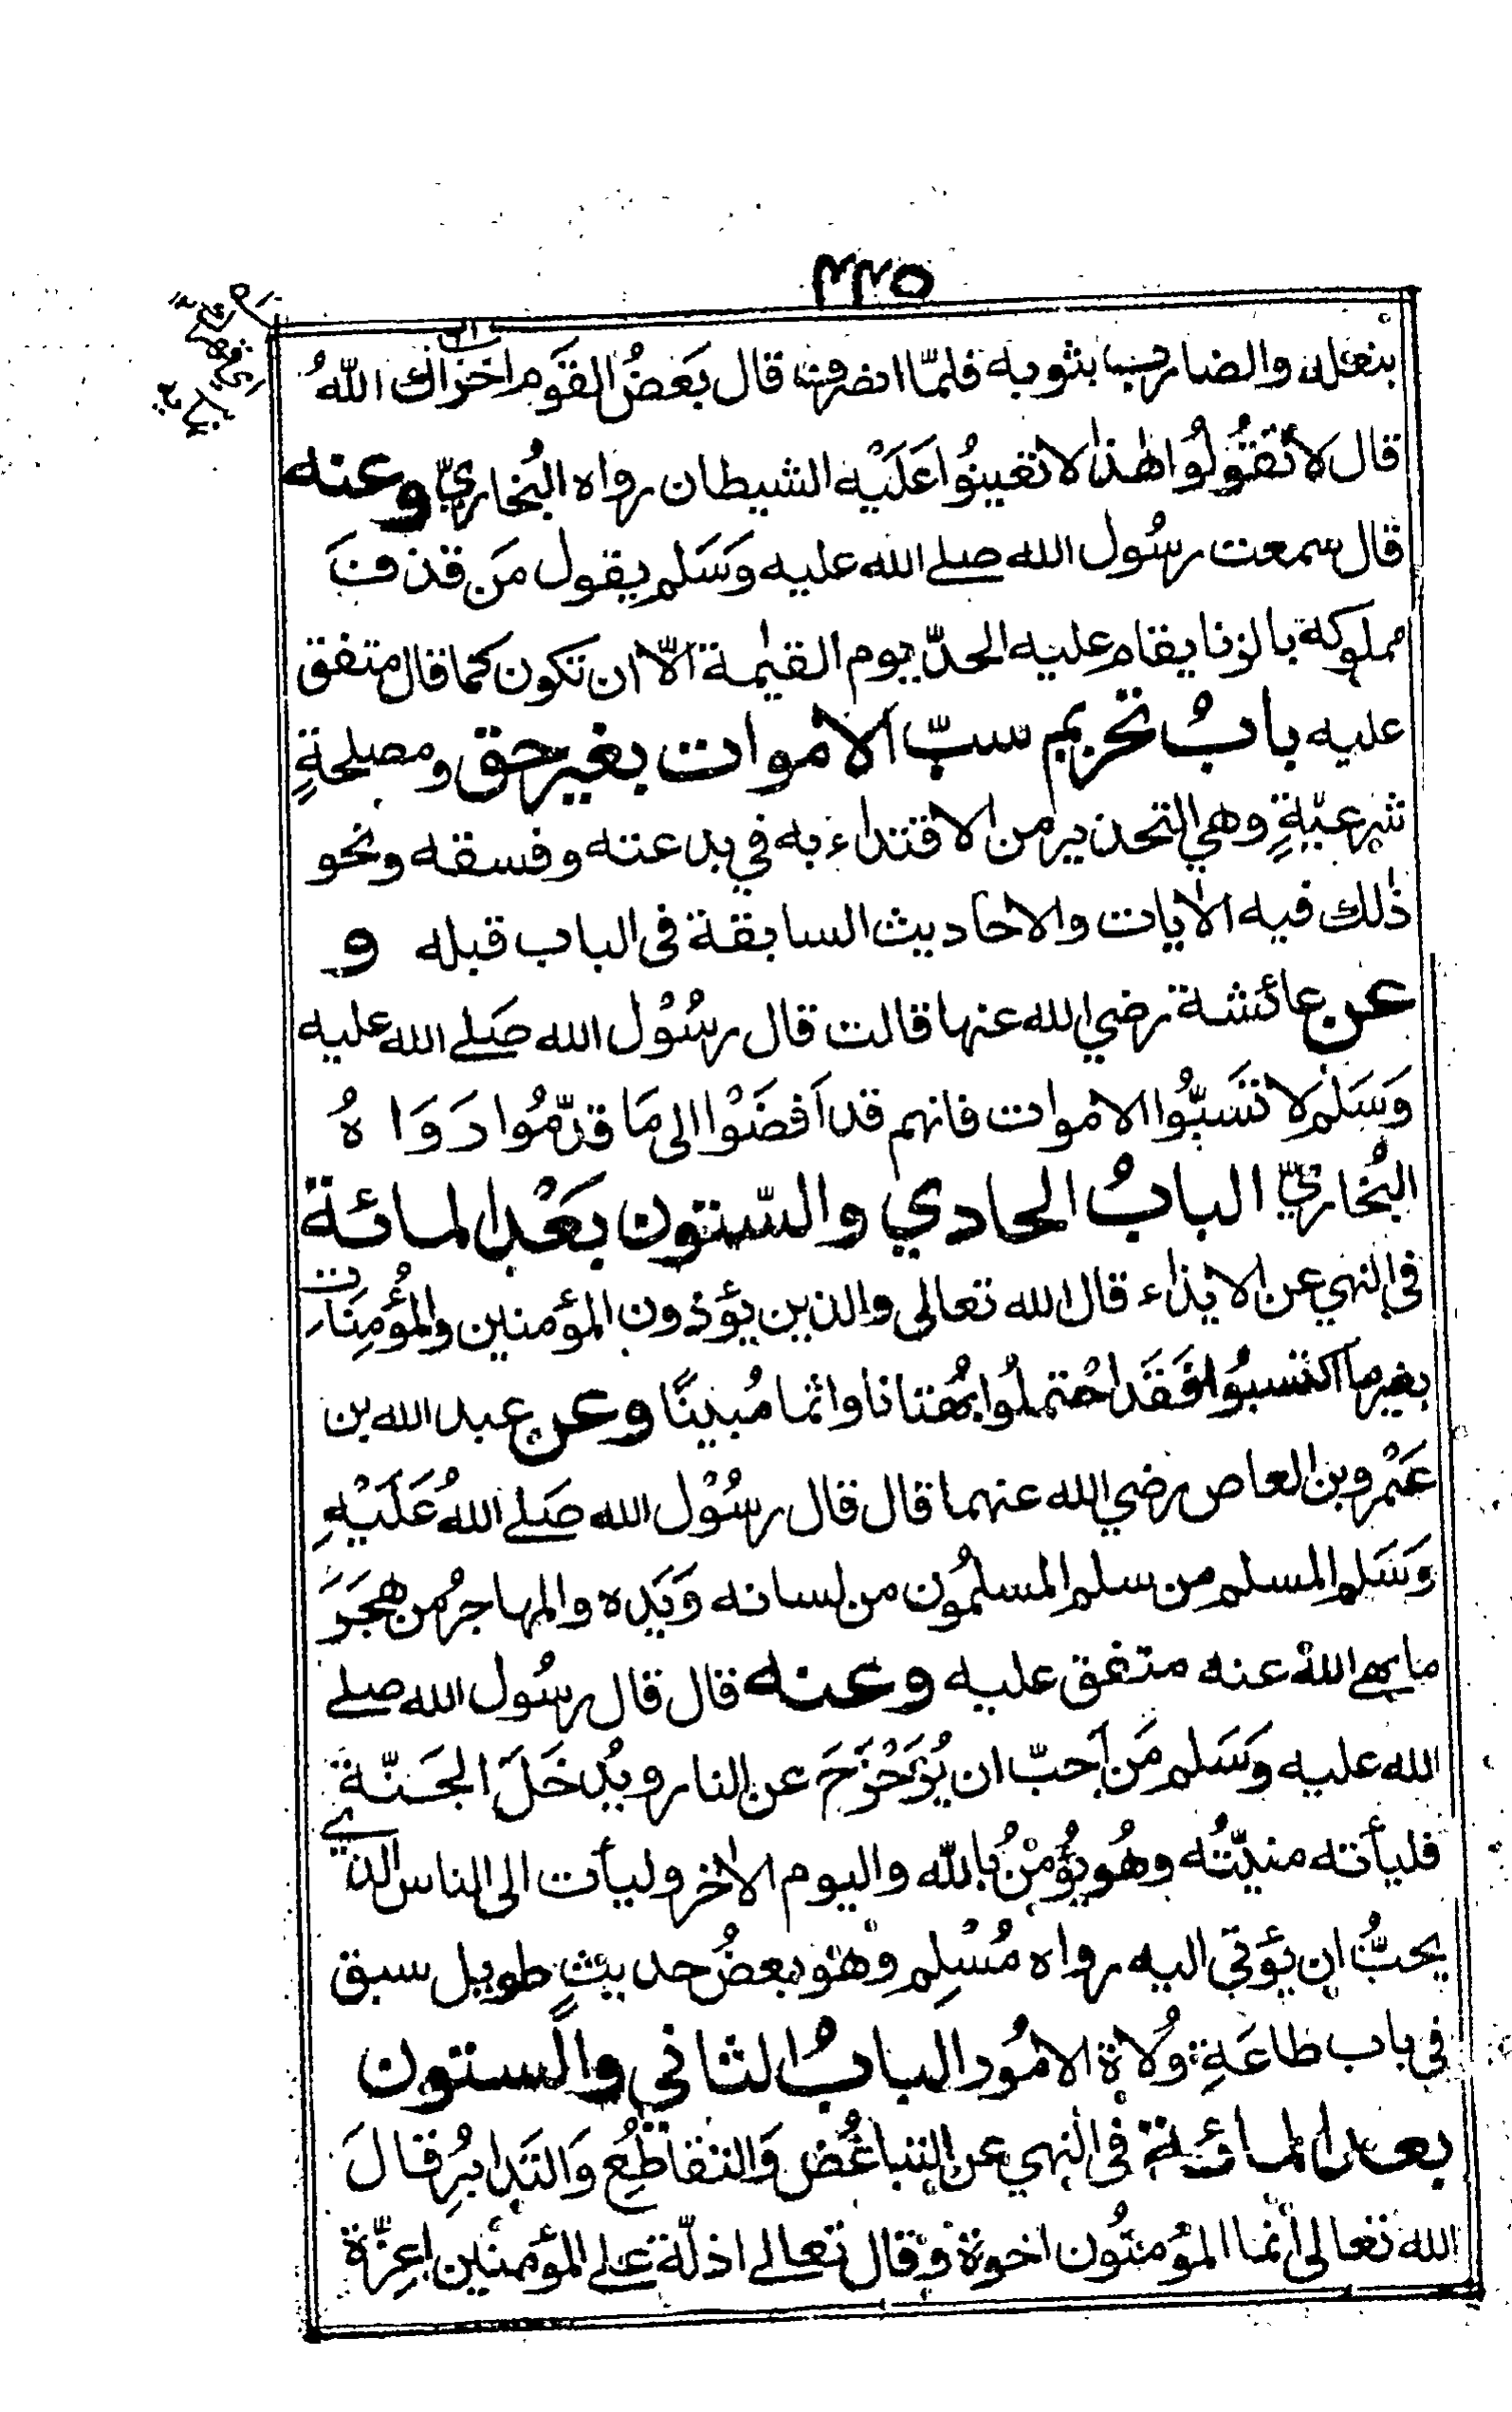 ٢٢٥
بنعله والضارب بثوبه فلمّا انصرف قال بَعَضُ القَوَم اخزاك اللّٰهُ
قال لا تَقُولُوا هٰذا لا تعينُوا عَلَيْه الشيطان رواه البُخاريّ وعنه
قال سمعت رسُول الله صلے الله عليه وَسَلم يقول مَن قذفَ
مملوكه بالزنا يقام عليه الحدّ يوم القيٰمة الّا ان تكون كما قال متفق
عليه بابُ تحريم سبّ الاموات بغير حق ومصلحةٍ
شرعيّةٍ وهي التحذير من الاقتداء به في بدعته وفسقه ونحو
ذٰلك فيه الاٰيات والاحاديث السابقة فى الباب قبله و
عن عائشة رضي الله عنها قالت قال رسُوْل الله صَلے الله عليه
وَسَلم لا تَسَبُّوا الاموات فانهم قد اَفضَوْا الى مَا قدّمُوا رَوَاهُ
البُخاريّ البابُ الحادي والسّتون بَعْد المائة
فى النهي عن الايذاء قال الله تعالى والذين يؤذون المؤمنين والمُؤمِنَات
بغير ما اكتسبُوا فَقَد احْتملُوا بُهْتانا واثما مُبينًا وعن عبد الله بن
عَمْرو بن العاص رضي الله عنهما قال قال رسُوْل الله صَلے اللهُ عَلَيْهِ
وَسَلم المسلم من سلم المسلمُون من لسانه وَيَده والمهاجرُ من هَجَرَ
ما نهى اللهُ عنه متفق عليه وعنه قال قال رسُول الله صلے
الله عليه وَسَلم مَن اَحبّ ان يُزَحْزَحَ عن النار ويُدخَلَ الجَنّة
فليأته منيّتُه وهُو يُؤمْنُ باللّٰه واليوم الاٰخر وليأت الى الناس الذي
يحبُّ ان يؤتى اليه رواه مُسْلِم وهُو بعضُ حديثٍ طويل سبق
فى باب طاعَةِ وُلاة الامُور البابُ الثاني والستون
بعد المائة فى النهي عن التباغُض وَالتقاطُعِ وَالتَدابرُِ قالَ
الله تعالى انما المؤمنُون اخوة وقال تعالے اذلّة علے المؤمنين اعِزّة